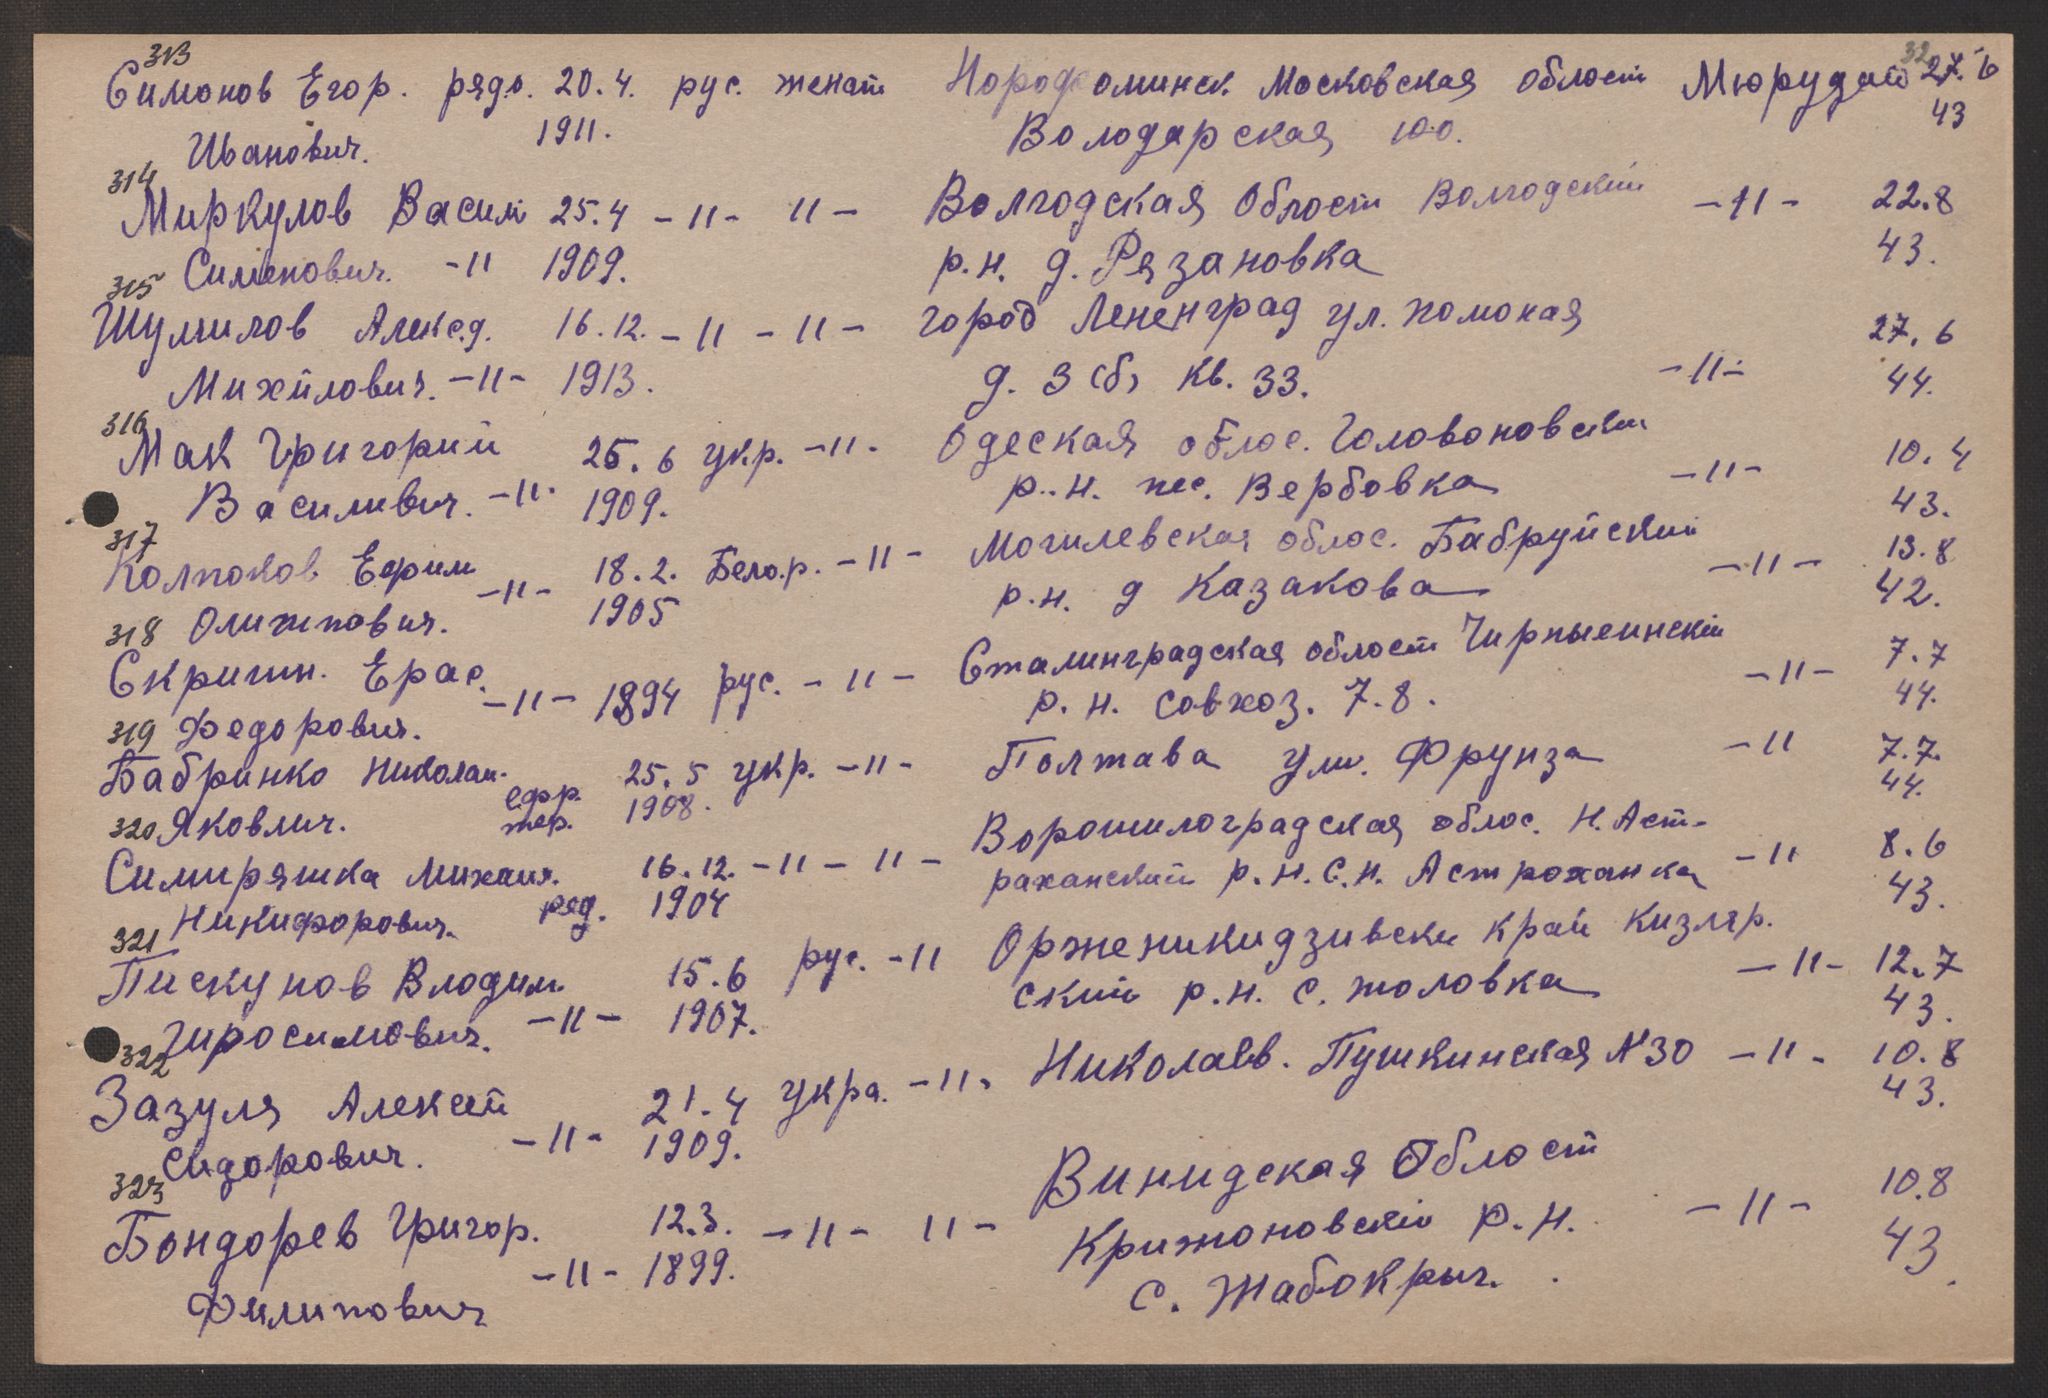 32
313
Симонов Егор. рядо. 20.4. рус. женат Нарофоминск Московская област 27.6
Иванович. 1911. Володарская 100. 43
314
Миркулов Васили 25.4 -11- 11- Волгодская Област Волгодский -11- 22.8
Сименович. -11 1909. р.н. д. Рязановка 43.
315
Шумилов Алексд. 16.12. -11-11- город Лененград ул. 27.6
Михйлович. -11- 1913. д. 3 кв. 33. -11- 44.
316
Мак Григорий 25.6 укр. -11- Одеская облос. Головоновский 10.4
Василивич. -11- 1909. р.н. Вербовка -11- 43.
317
Колпоков Ефим 18.2. Бело.р. -11- Могилевская облос. Бабруйский 13.8
-11- 1905 р.н. д Казакова -11- 42.
318
Ерас. -11- 1894 рус. -11- Сталинградская област 7.7
Федорович. р.н. совхоз. 7.8. -11- 44.
319
Бабринко Николаи. 25.5 укр. -11- Полтава ули. Фрунза -11 7.7.
Яковлич. ефр. 1908. 44.
320
Симиряшка Михаил. 16.12. -11-11- Ворошилоградская облос. Н. Аст- 8.6
Никифорович. ряд. 1904 раханский р.н. с.н. Астроханка -11 43.
321
Пискунов Влодим. 15.6 рус. -11 Орженикидзивски край кизляр. 12.7
Гиросимович. -11- 1907. ский р.н. с. -11- 43.
322
Зазуля Алексей 21.4 укра. -11- Николаев. Пушкинская N30 -11- 10.8
Сидорович. -11- 1909. 43.
323
Бондорев Григор. 12.3. -11- 11- Винидская Област 10.8
-11- 1899. Крижоновский р.н. -11- 43.
Филипович с. Жабокрыч.